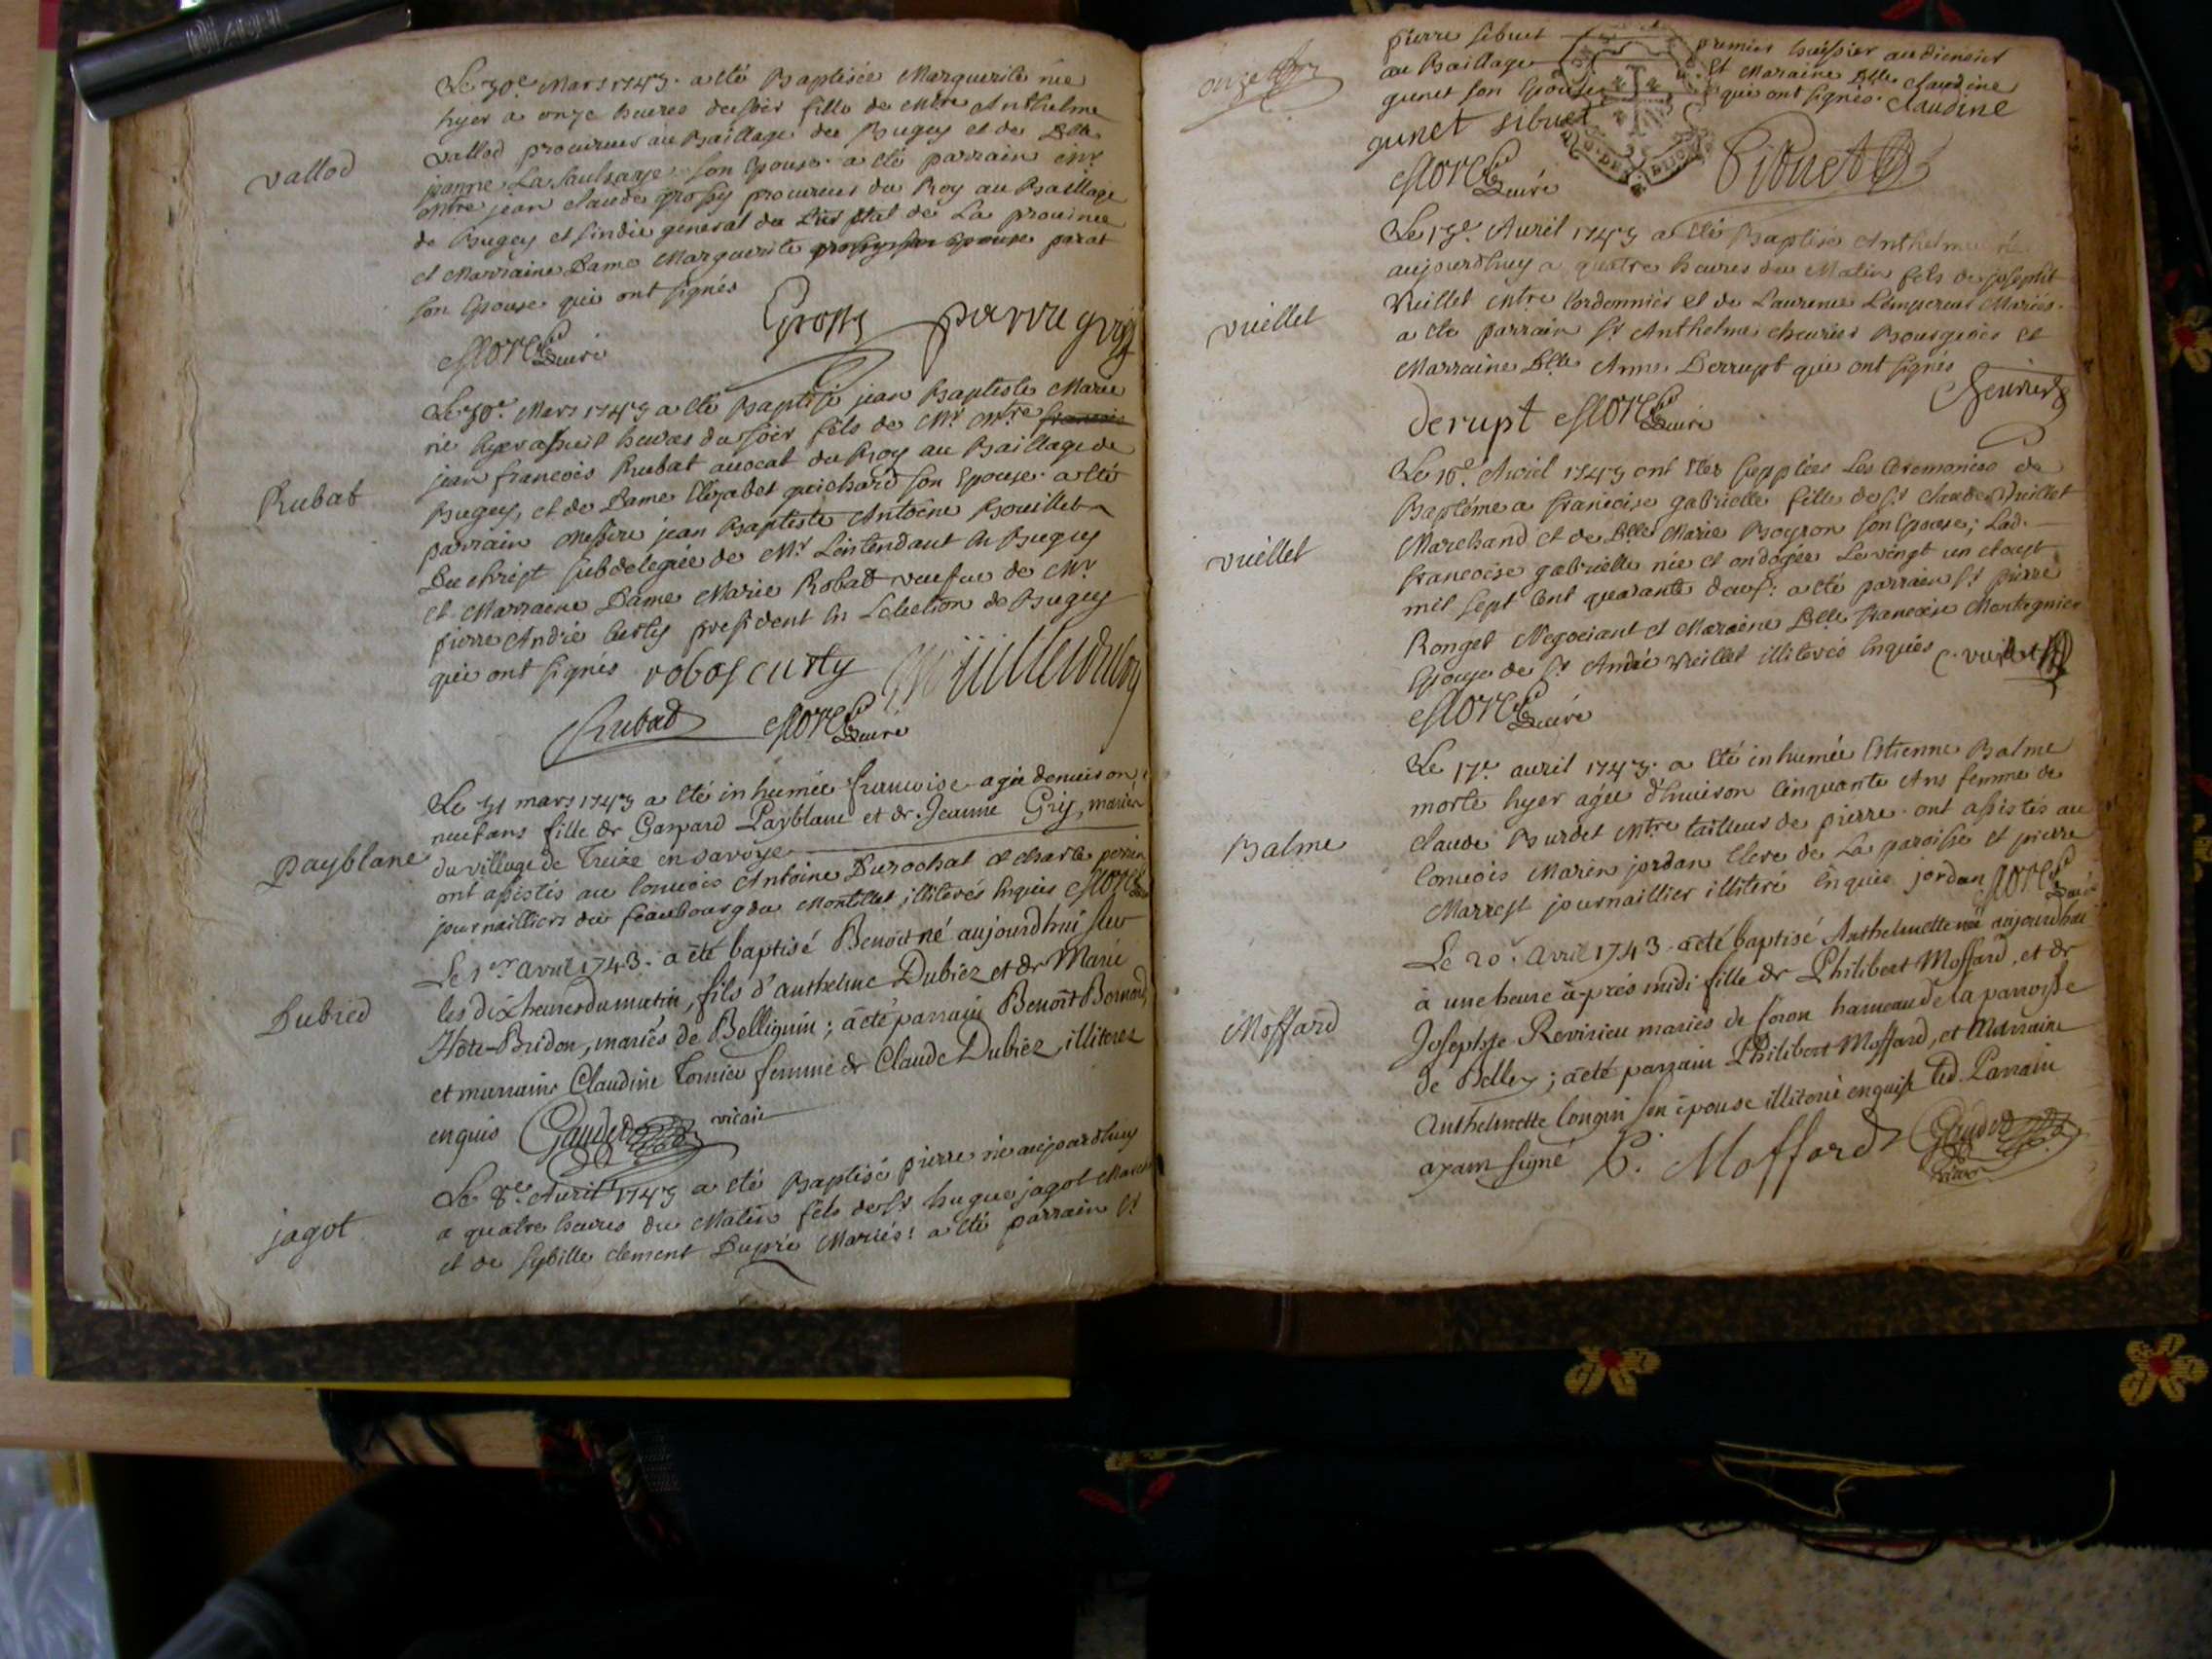 Le 30e Mars 1743. a été Baptisée Marguerite née
hyer a onze heures du soir fille de Mtre Anthelme
vallod
Vallod procureur au Baillage du Bugey et de Dlle
jeanne La Saulsaye son Epouse. a été parrain Mr
Mtre jean claude grossy procureur du Roy au Baillage
de Bugey et sindic general du Tier Etat de La province
et Marraine Dame Marguerite grossy son Epouse parat
son Epouse qui ont signés
Grossy parra grossy
Morel Curé
Le 30e. Mars 1743 a été Baptisé jean Baptiste Marie
né hyer a huit heures du soir fils de Mr Mtre francois
Rubat
jean francois Rubat avocat du Roy au Baillage de
Bugey, et de Dame Elizabet guichard son Epouse. a été
parrain Messire jean Baptiste Antoine Bouillet
Duchrist subdelegué de Mr L'intendant En Bugey
et Marraine Dame Marie Robat veufve de Mr
pierre André Curty president En Lelection de Bugey
qui ont signés robat curty
Rubat Morel Curé
Le 31 mars 1743 a été inhumée francoise agée denuiron
neuf ans fille de Gaspard Payblanc et de Jeanne Grij, mariés
Payblanc
du village de Treize en Savoye
ont assistés au Convois Antoine Durochat et charle perrin
journailliers du feaubourg du Montillet illiterés Enquis Morel Curé
Le 1er avril 1743. a été baptisé Benoit né aujourdhui sur
les dix heures du matin, fils d'anthelme Dubiez et de Marie
Dubied
Hôte-Bridon, mariés de Belliguin; a été parrain Benoît Bornard,
et marraine Claudine Tornier femme de Claude Dubiez, illiteres
enquis Gaudet vicaire
Le 8e. Avril 1743 a été Baptisé pierre né aujourdhuy
a quatre heures du Matin fils de Sr hugue jagot March
jagot
et de Sybille clement Dupré Mariés: a été parrain Sr
pierre sibuet premier huissier audiencier
onze
au Baillage Et Maraine Dlle claudine
gunet son Epouse qui ont signés. Claudine
gunet sibuet
Morel Curé
Le 13e. Avril 1743 a été Baptisé Anthelme né
aujourdhuy a quatre heures du Matin fils de joseph
vuillet
Vuillet Mtre Cordonnier et de Laurence Lempereur Mariés.
a été parrain Sr Anthelme cheurier Bourgeois et
Marraine Dlle Anne Derrupt qui ont signés
derupt Morel Curé Cheurier
Le 16e. Avril 1743 ont Etés supplées Les Ceremonies de
Baptême a francoise gabrielle fille de Sr claude Vuillet
vuillet
Marchand et de Dlle Marie Boyron son Epouse; Lad.
francoise gabrielle née et ondoyée Le vingt un Aoust
mil sept Cent quarante deux: a été parrain Sr pierre
Ronget Negociant et Maraine Dlle francoise Montagnier
Epouse de Sr André Vuillet illiterés Enquis C. vuillet
Morel Curé
Le 17e avril 1743. a été inhumée Estienne Balme
morte hyer agée d'huiron Cinquante Ans femme de
Balme
Claude Burdet Mtre tailleur de pierre. ont assistés au
Convois Marin jordan Clerc de La paroisse et pierre
Marrest journaillier illiteré Enquis jordan Morel Curé
Le 20e. avril 1743. a été baptisé Anthelmette née aujourdhui
à une heure après midi fille de Philibert Moffard, et de
Moffard
Josephte Revirieu mariés de Soron hameau de la parroisse
de Belley; a été parrain Philibert Moffard, et Marraine
Anthelmette Longin son épouse illiterée enquise led. Parrain
ayant signé P. Moffard Gaudet vicaire